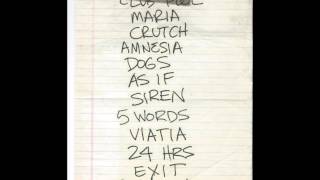 MARIA
CRUTCH
AMNESIA
DOGS
AS IF
SIREN
5 WORDS
VIATIA
24 HRS
EXIT